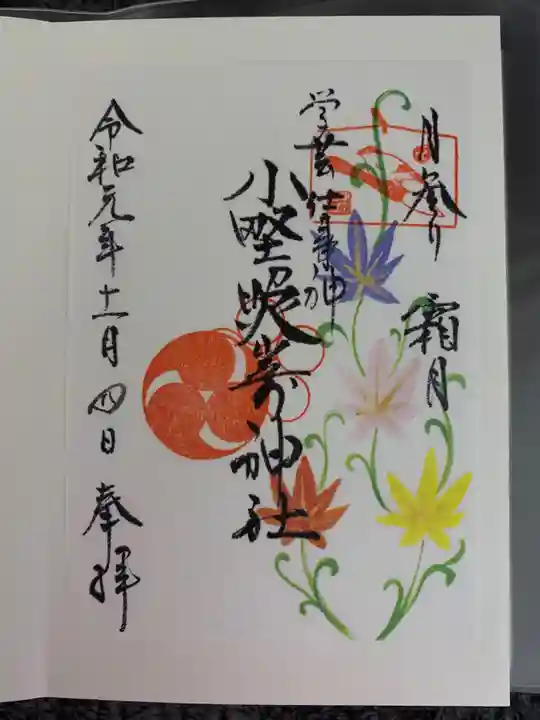 月参り 霜月
学芸 仕事の神
小野照崎神社
令和元年十一月四日 奉拝